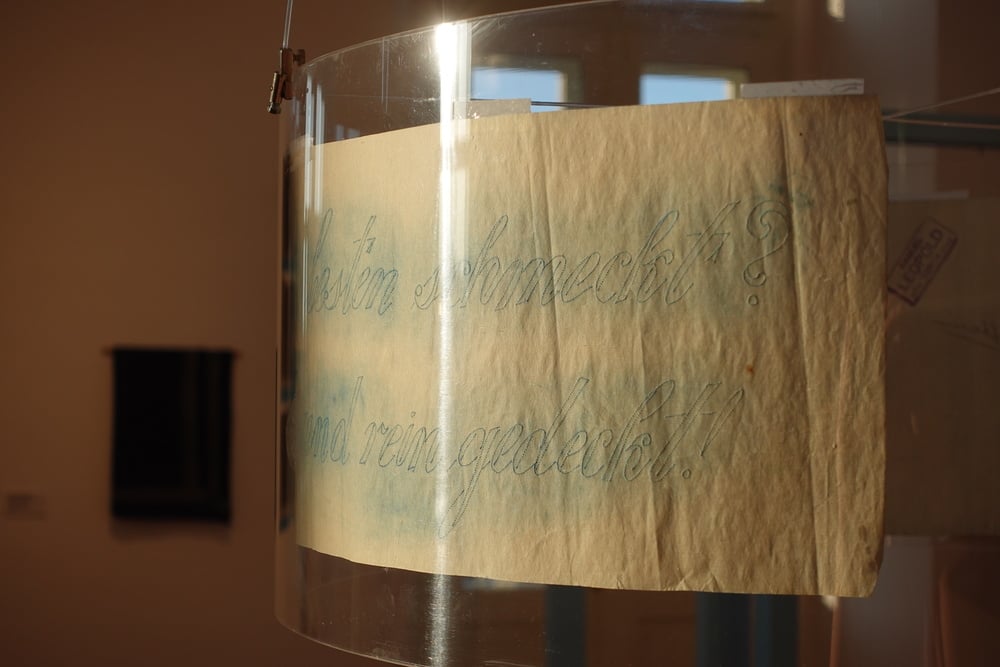 besten schmeckt?
und rein gedeckt!
LEOPOLD